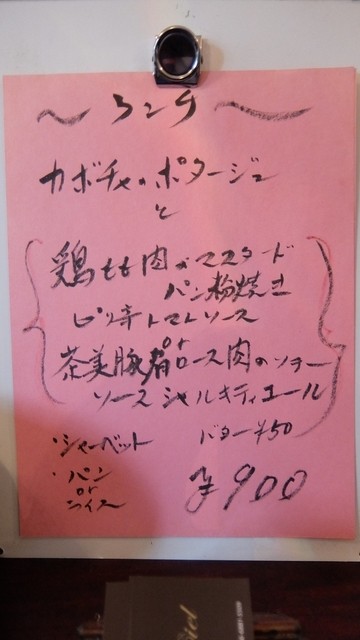 〜ランチ〜
カボチャのポタージュ
と
鶏もも肉のマスタード
パン粉焼き
ピリ辛トマトソース
or
茶美豚肩ロース肉のソテー
ソースシャルキティエール
・シャーベット バター¥50
・パン
or
ライス
¥900